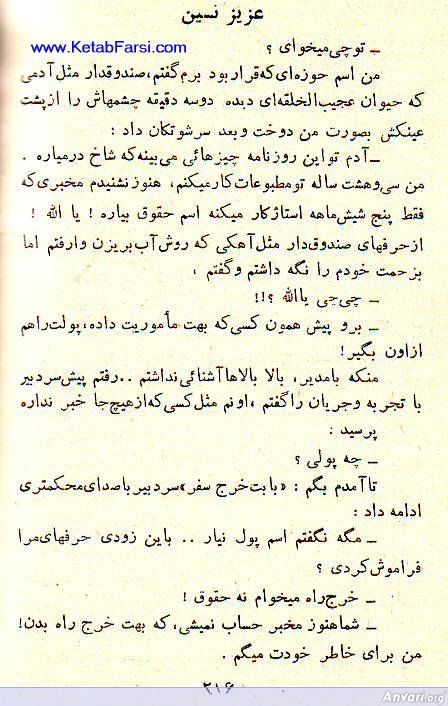 عزیز نسین
www.KetabFarsi.com
ــ توچی میخوای ؟
من اسم حوزه‌ای که قرار بود برم گفتم، صندوقدار مثل آدمی
که حیوان عجیب‌الخلقه‌ای دیده دوسه دقیقه چشمهاش را از پشت
عینکش بصورت من دوخت و بعد سرشو تکان داد :
ــ آدم تو این روزنامه چیزهائی می‌بینه که شاخ درمیاره .
من سی‌وهشت ساله تو مطبوعات کار میکنم، هنوز نشنیدم مخبری که
فقط پنج شیش ماهه استاژ کار میکنه اسم حقوق بیاره ! یا الله !
از حرفهای صندوق‌دار مثل آهکی که روش آب بریزن وارفتم اما
بزحمت خودم را نگه داشتم و گفتم ،
ــ چی‌چی یاالله ؟!!
ــ برو پیش همون کسی که بهت مأموریت داده، پولت راهم
ازاون بگیر!
منکه بامدیر، بالا بالاها آشنائی نداشتم .. رفتم پیش سردبیر
با تجربه و جریان را گفتم ، اونم مثل کسی که از هیچ‌جا خبر نداره
پرسید :
ــ چه پولی ؟
تا آمدم بگم : «بابت خرج سفر» سردبیر باصدای محکمتری
ادامه داد :
ــ مگه نگفتم اسم پول نیار .. باین زودی حرفهای مرا
فراموش کردی ؟
ــ خرج‌راه میخوام نه حقوق !
ــ شما هنوز مخبر حساب نمیشی، که بهت خرج راه بدن!
من برای خاطر خودت میگم .
۲۱۶
Anvari.org